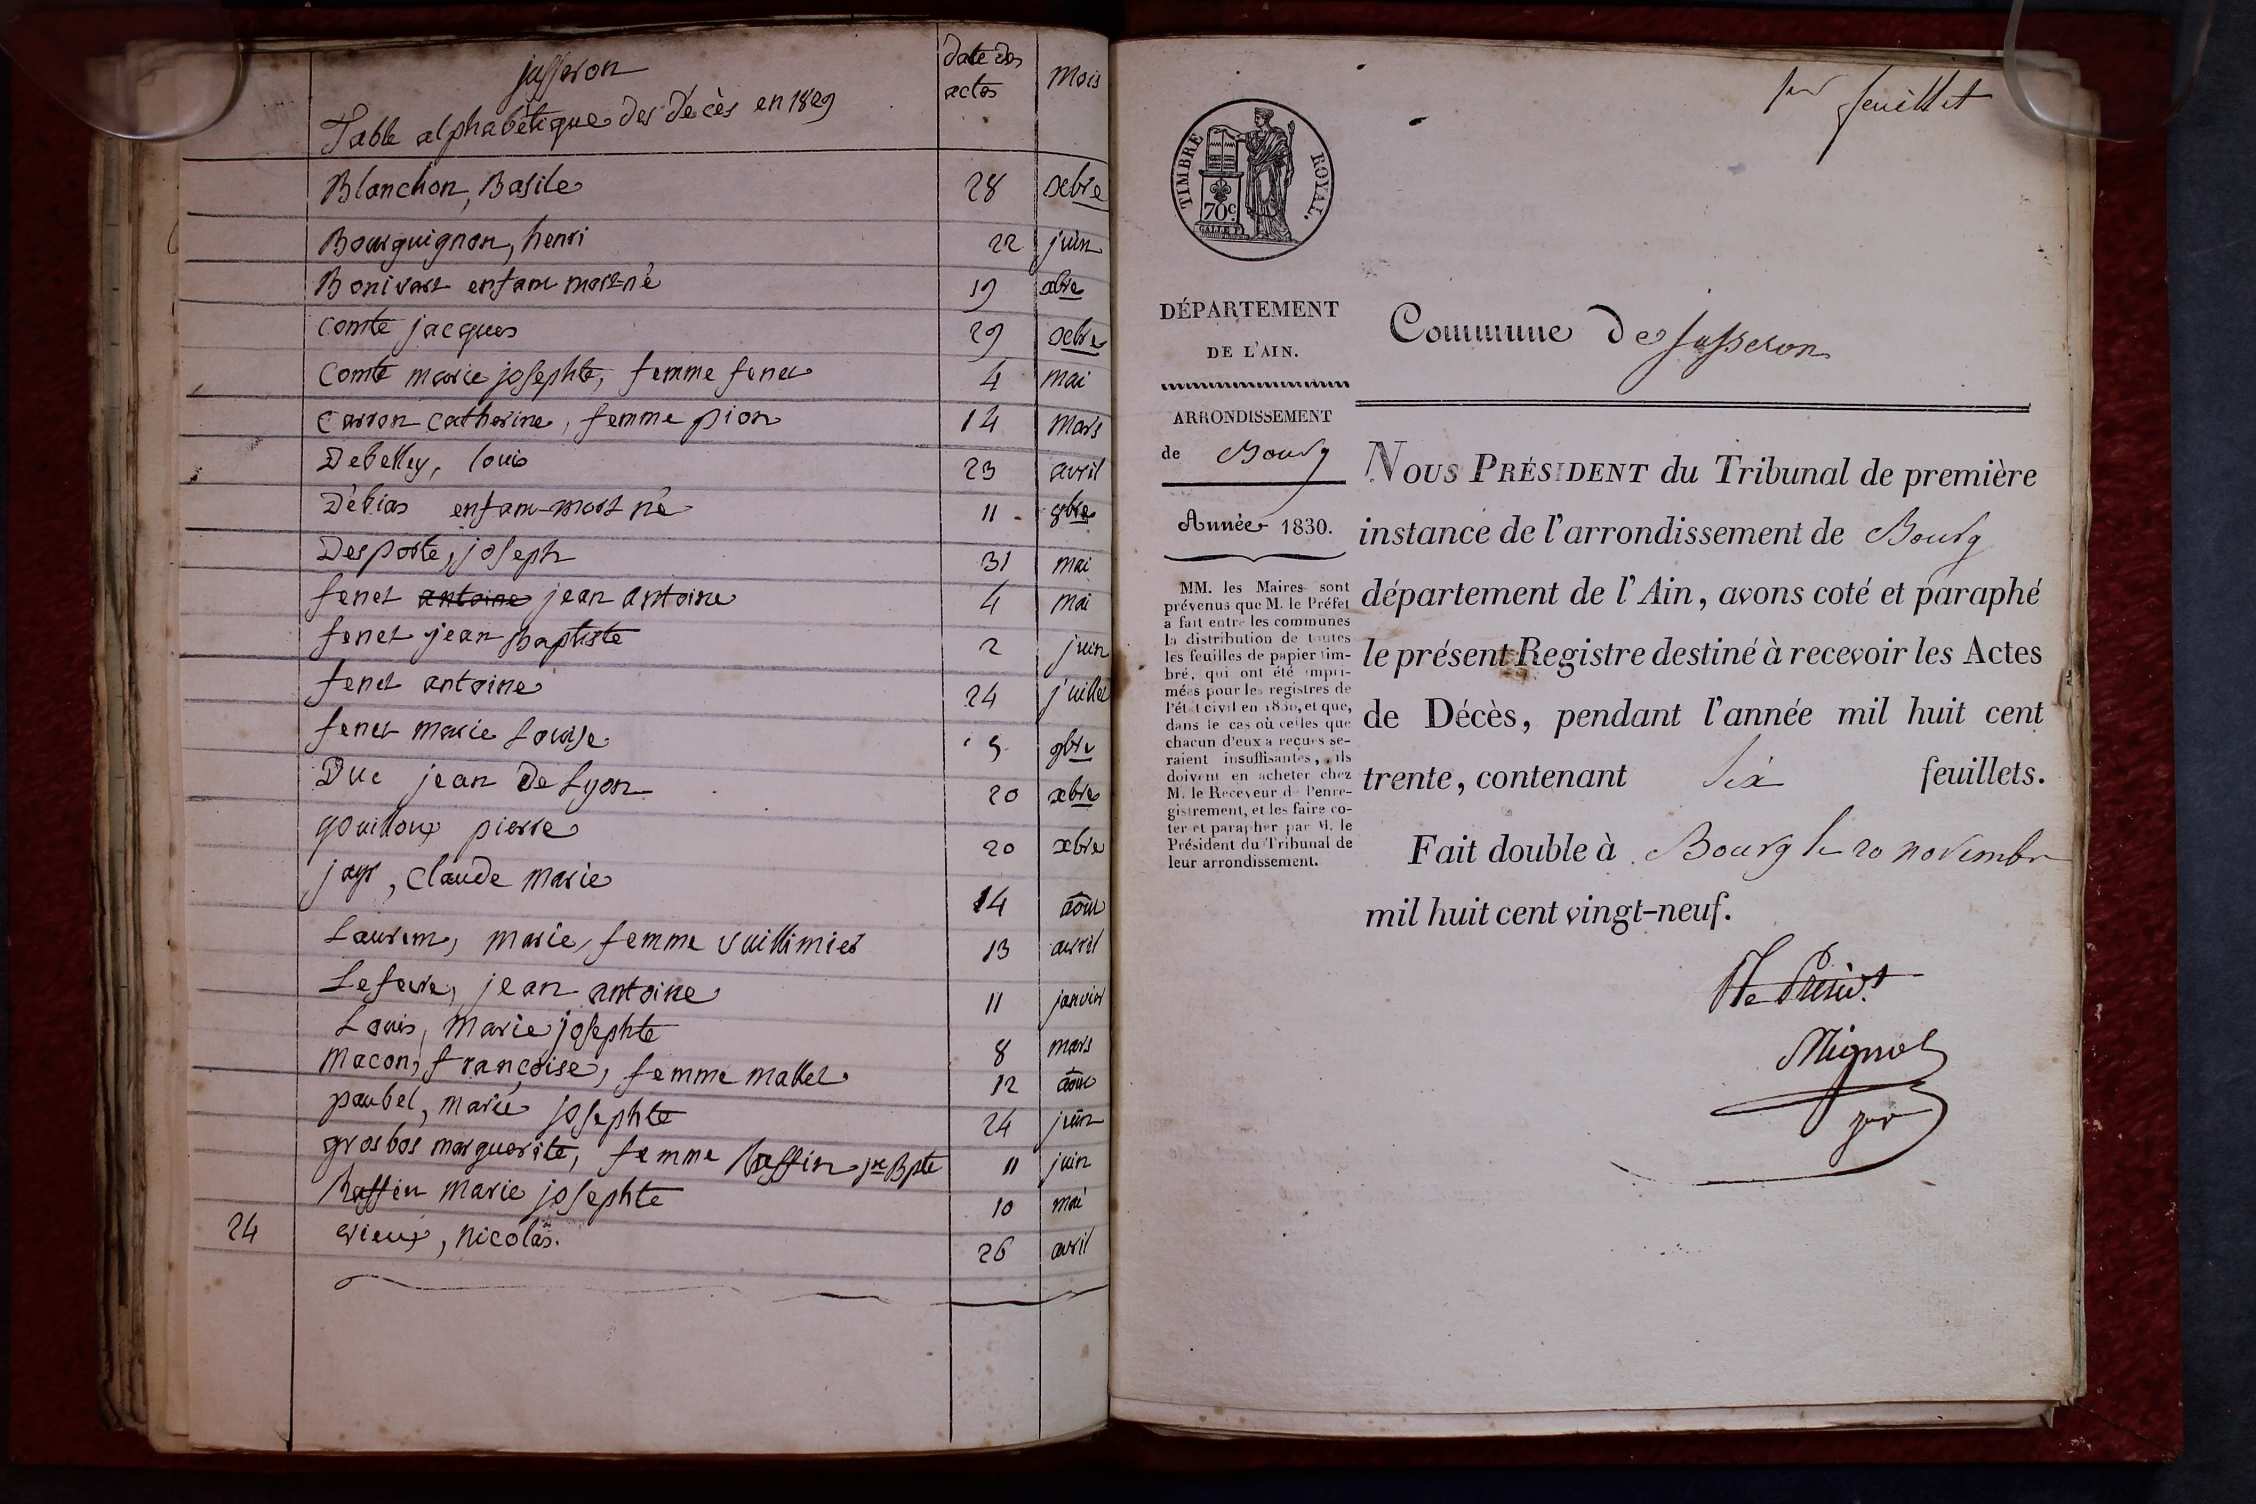 jasseron
Table alphabétique des décès en 1829
date des
actes
mois
Blanchon, Basile 28 xbre
Bourguignon, henri 22 juin
Bonivart enfant mort-né 19 xbre
Comte jacques 29 xbre
Comte marie josephte, femme fenet 4 mai
Carron Catherine, femme pion 14 mars
Debelley, louis 23 avril
Débias enfant-mort né 11 9bre
Desporte, joseph 31 mai
fenet antoine jean antoine 4 mai
fenet jean Baptiste 2 juin
fenet antoine 24 juillet
fenet marie Louise 5 9bre
Duc jean De Lyon 20 xbre
gouilloux pierre 20 xbre
jayr, Claude marie 14 août
Laurent, marie, femme vuillimier 13 avril
Lefevre, jean antoine 11 janvier
Louis, marie josephte 8 mars
macon, françoise, femme mallet 12 août
paubel, marie josephte 24 juin
grosbos marguerite, femme Ruffin jn Bpte 11 juin
Ruffin marie josephte 10 mai
24 vieux, nicolas. 26 avril
1er feuillet
TIMBRE ROYAL.
70c
DÉPARTEMENT
DE L'AIN.
Commune de Jasseron
ARRONDISSEMENT
de Bourg
Année 1830.
MM. les Maires sont
prévenus que M. le Préfet
a fait entre les communes
la distribution de toutes
les feuilles de papier tim-
bré, qui ont été impri-
mées pour les registres de
l'état civil en 1830, et que,
dans le cas où celles que
chacun d'eux a reçues se-
raient insuffisantes, ils
doivent en acheter chez
M. le Receveur de l'enre-
gistrement, et les faire co-
ter et parapher par M. le
Président du Tribunal de
leur arrondissement.
NOUS PRÉSIDENT du Tribunal de première
instance de l'arrondissement de Bourg
département de l'Ain, avons coté et paraphé
le présent Registre destiné à recevoir les Actes
de Décès, pendant l'année mil huit cent
trente, contenant six feuillets.
Fait double à Bourg le 20 novembre
mil huit cent vingt-neuf.